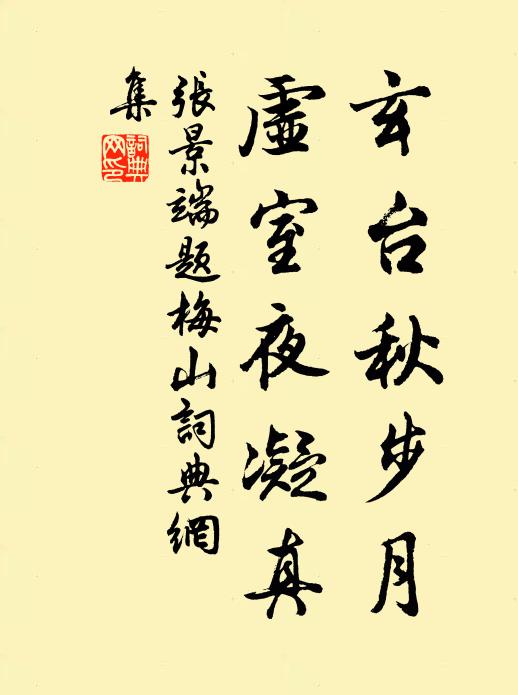 玄台秋步月
虛室夜凝真
張景端題梅山詞典網
集
詞典
网印